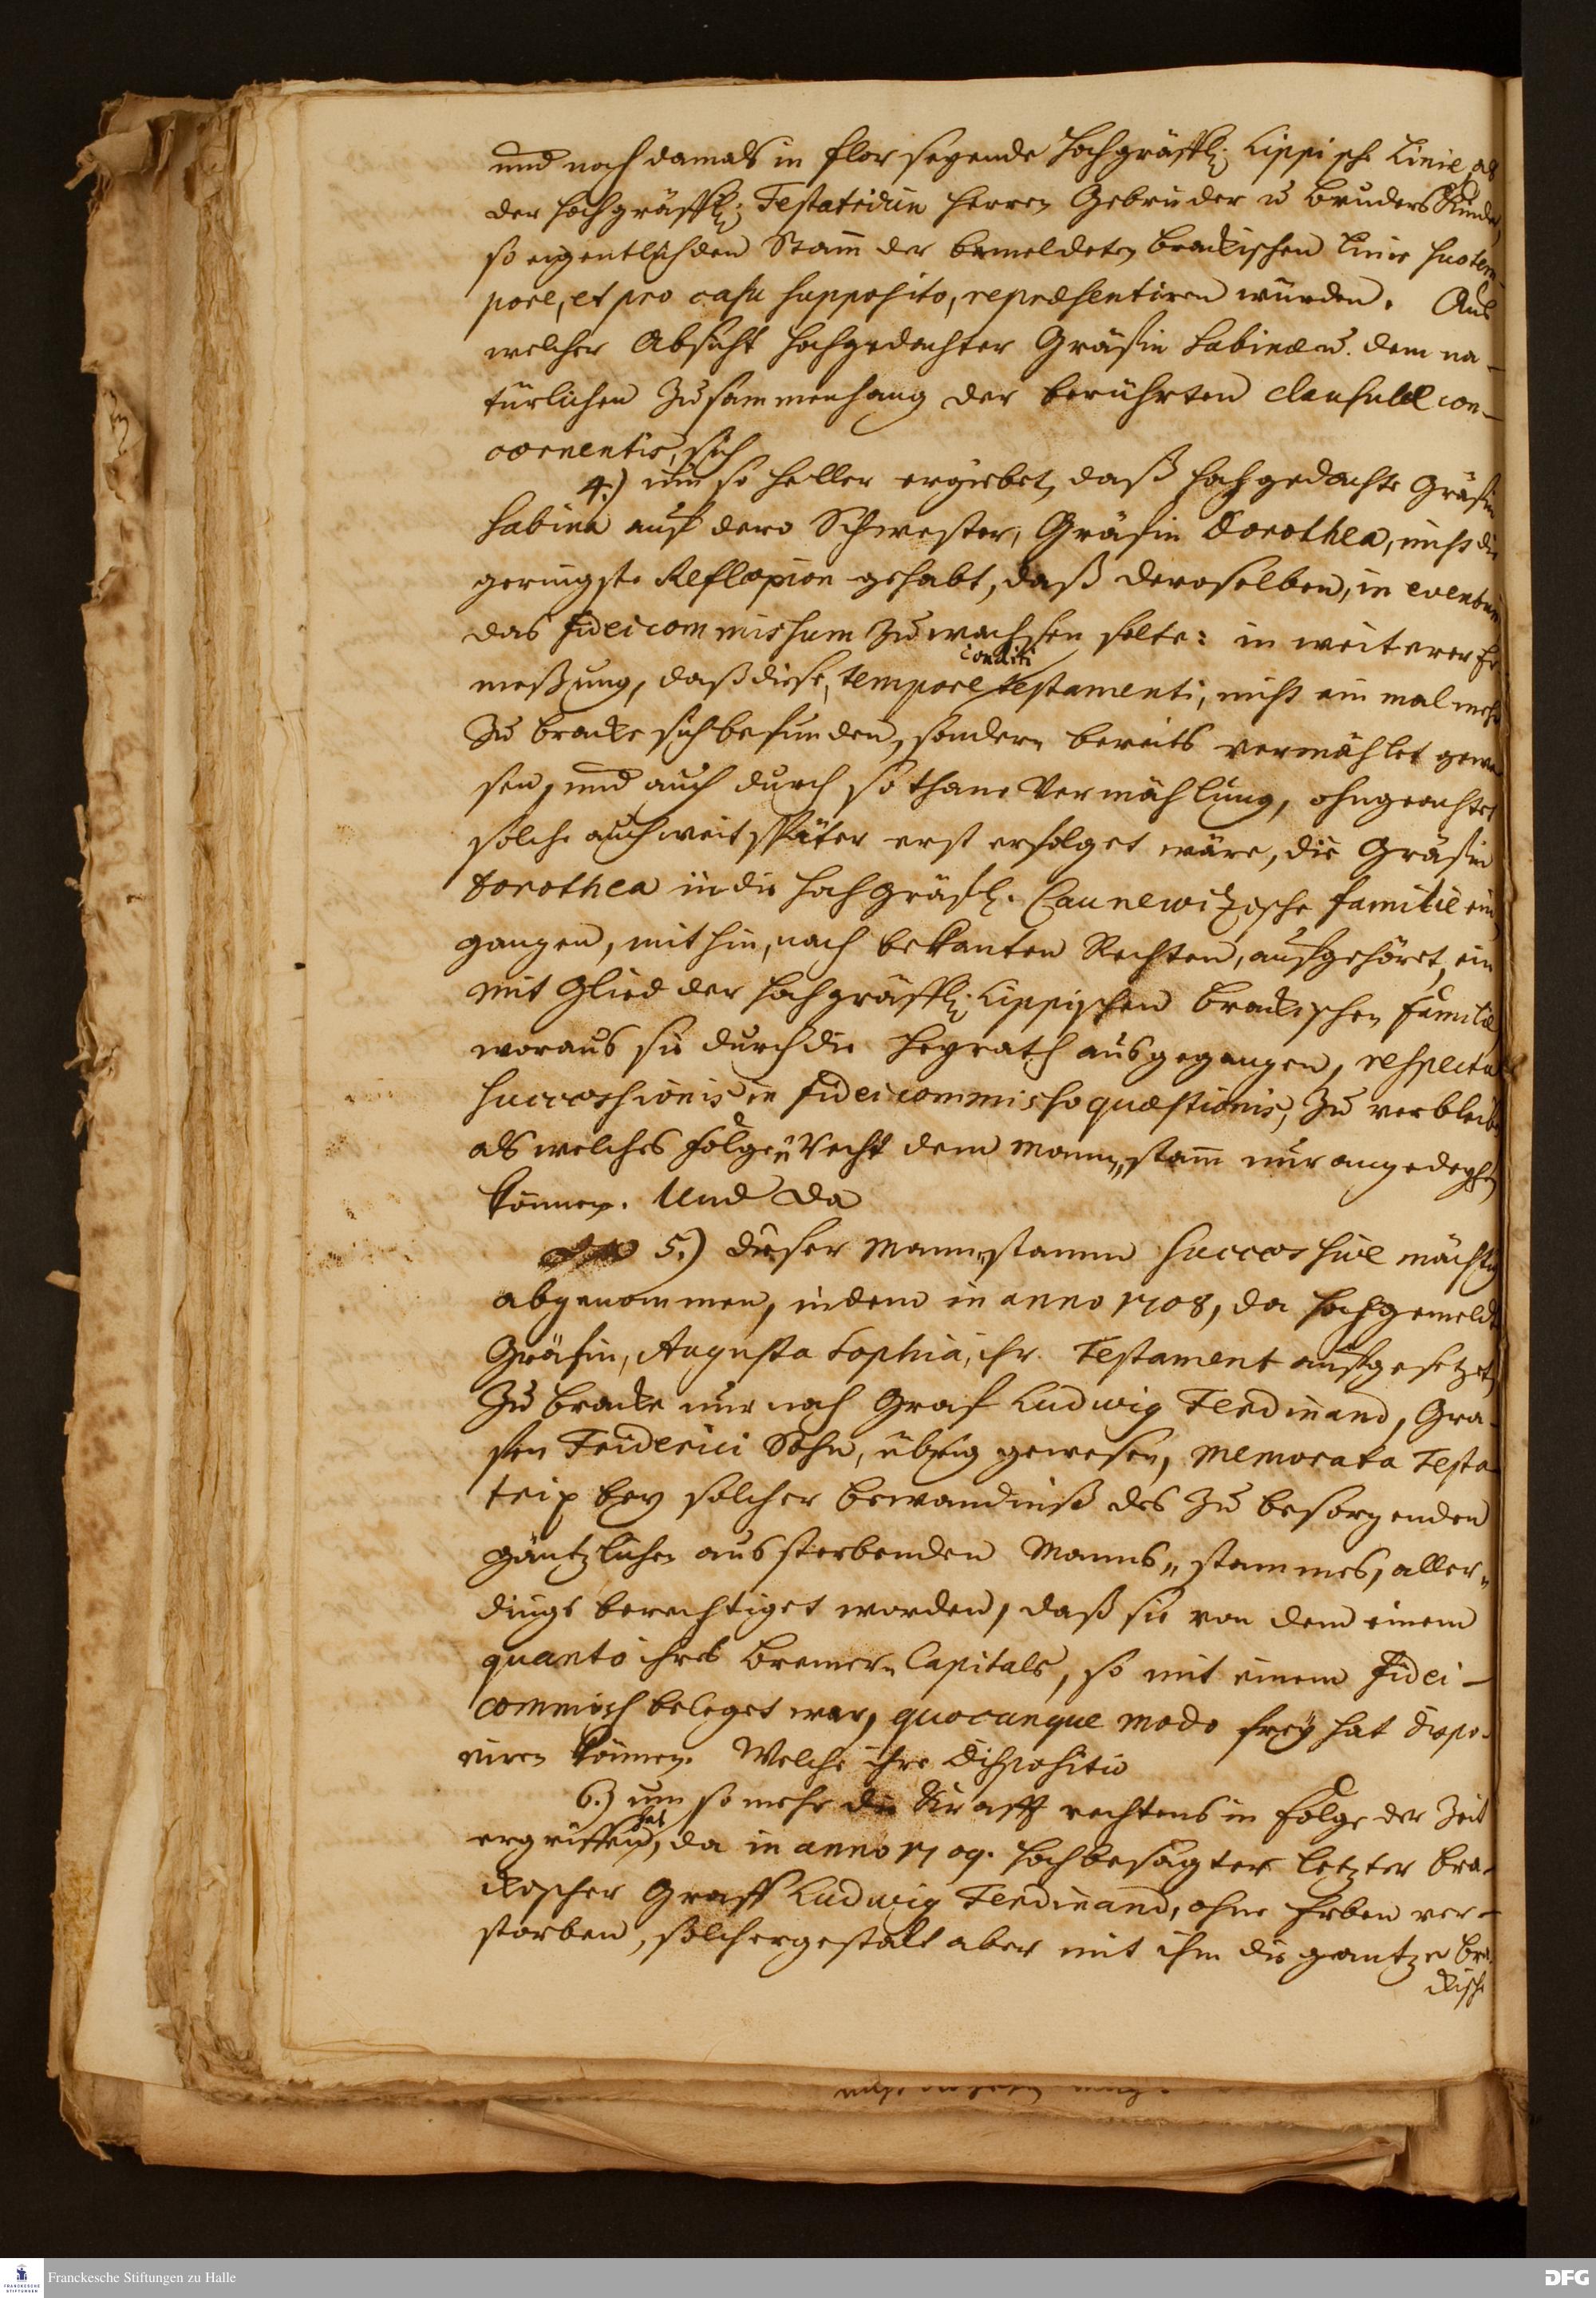 und noch damals in flor seyende Hochgräffl: Lippische Linie, als
der Hochgräffl: Testatricum Herren Gebrüder u Bruders Kinder,
so eigentlich den Stam̅ der bemeldeten Brackischen Linie suo tem-
pore, et pro casu supposito, repræsentiren würden. Aus
welcher Absicht Hochgedachter Gräfin Sabinæ u. dem na-
türlichen Zusammenhang der berührten clausulæ con-
cernentis, sich
4.) um so heller ergiebet, daß Hochgedachte Gräfin
Sabina auf dero Schwester, Gräfin Dorothea, nicht die
geringste Reflexion gehabt, daß deroselben, in eventum
das Fideicommissum zuwachsen solte: in weiterer Er
meßung, daß diese, tempore conditi testamenti, nicht ein mal mehr
zu Bracke sich befunden, sondern bereits vermählet gewe
sen, und auch durch sothane Vermählung, ohngeachtet
solche auch weit später erst erfolget wäre, die Gräfin
Dorothea in die Hochgräfl. Caunewizische familie ein
gangen, mithin, nach bekanten Rechten, aufgehöret, ein
mit Glied der Hochgräffl: Lippischen Brackischen familie
woraus sie durch die Heyrath ausgegangen, respectu
successionis in fideicommisso quæstionis, zu verbleiben
als welches Folge Recht dem Mann„stam̅ nur angedeyhen
können. Und da
5.) dieser Mann„stamm successive mächtig
abgenommen, indem in anno 1708, da Hochgemeldte
Gräfin, Augusta Sophia, ihr Testament aufgesetzet,
zu Bracke nur noch Graf Ludwig Ferdinand, Gra-
fen Friderici Sohn, übrig gewesen, memorata Testa-
trix bey solcher Bewandniß des zu besorgenden
gäntzlichen aussterbenden Manns„stammes, aller„
dings berechtiget worden, daß sie von dem einem
quanto ihres Bremer„Capitals, so mit einem Fidei-
commiss beleget war, quocunque modo frey hat dispo-
niren können. Welche ihre Dispositio
6.) um so mehr die Krafft rechtens in Folge der Zeit
ergriffen hat, da in anno 1709. Hochbesagter letzter Bra-
ckischer Graff Ludwig Ferdinand, ohne Erben ver-
storben, solchergestalt aber mit ihm die gantze Bra-
ckische
Franckesche Stiftungen zu Halle
DFG